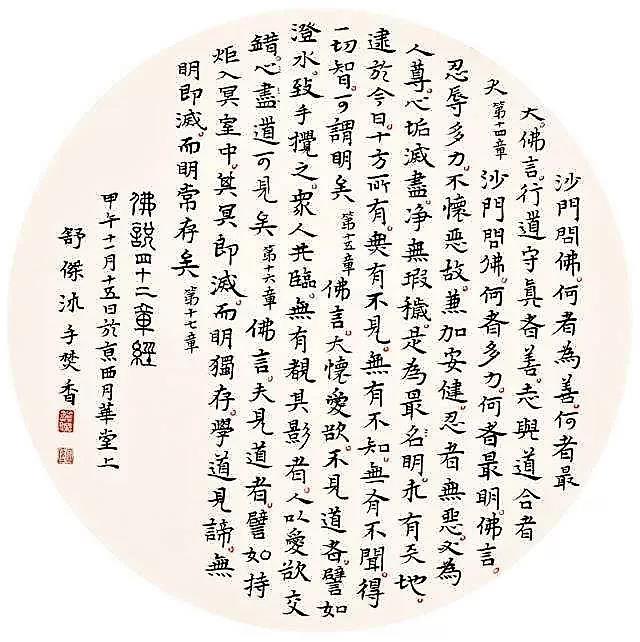 沙門問佛何者為善何者最
大佛言行道守真者善志與道合者
大 第十四章 沙門問佛何者多力何者最明佛言
忍辱多力不懷惡故兼加安健忍者無惡必為
人尊心垢滅盡净無瑕穢是為最名明未有天地
逮於今日十方所有無有不見無有不知無有不聞得
一切智可謂明矣 第十五章 佛言人懷愛欲不見道者譬如
澄水致手攪之眾人共臨無有覩其影者人以愛欲交
錯心盡道可見矣 第十六章 佛言夫見道者譬如持
炬入冥室中其冥即滅而明獨存學道見諦無
明即滅而明常存矣 第十七章
佛說四十二章經
甲午十一月十五日於京西月華堂上
舒傑沐手焚香